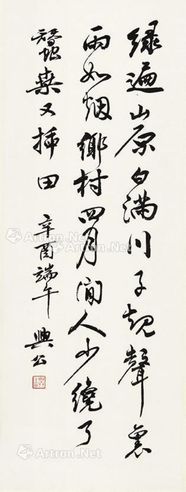 绿遍山原白满川子规声里
雨如烟乡村四月闲人少才了
蚕桑又插田 辛酉端午 兴公
Artron.Net